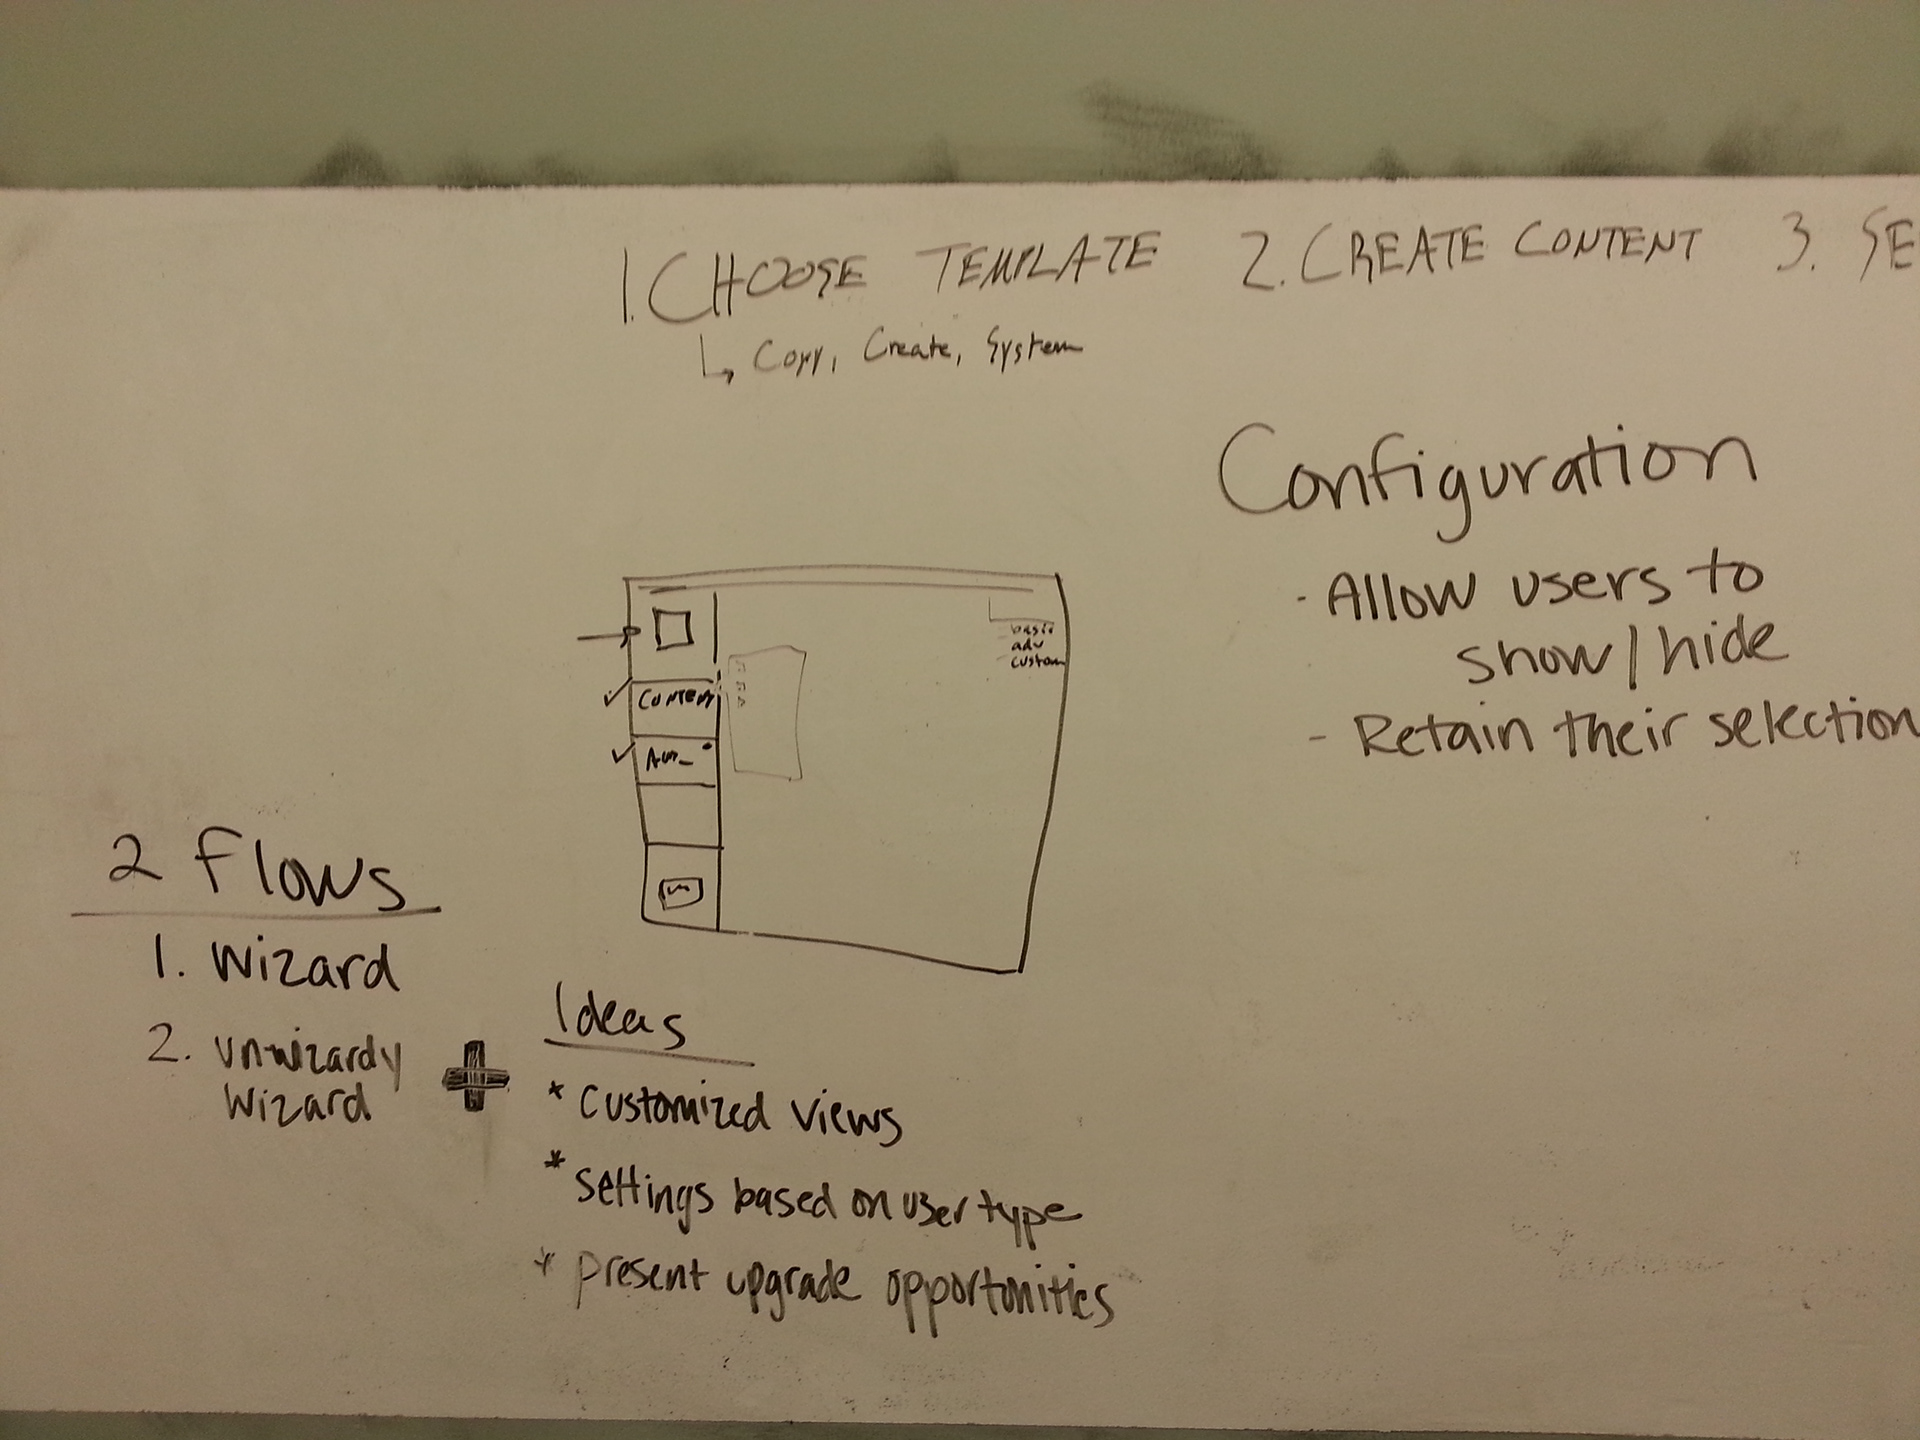 1. CHOOSE TEMPLATE 2. CREATE CONTENT 3. SE
↳ Copy, Create, System
Configuration
- Allow users to
show/hide
- Retain their selection
basic
adv
custom
✓ CONTENT
2 Flows
1. Wizard
2. un-wizardy
Wizard
+
Ideas
* customized views
* settings based on user type
* present upgrade opportonities